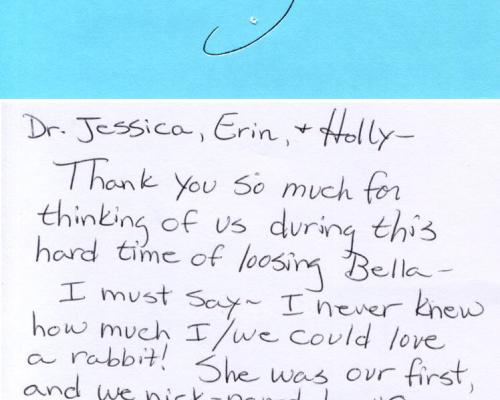 Dr. Jessica, Erin, + Holly-
Thank you so much for
thinking of us during this
hard time of loosing Bella-
I must say~ I never knew
how much I/we could love
a rabbit! She was our first,
and we nick-named